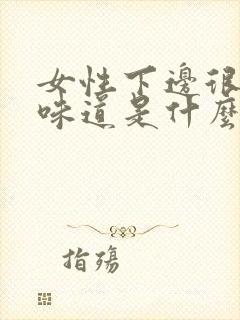 女性下邊很
味道是什麼
指殤